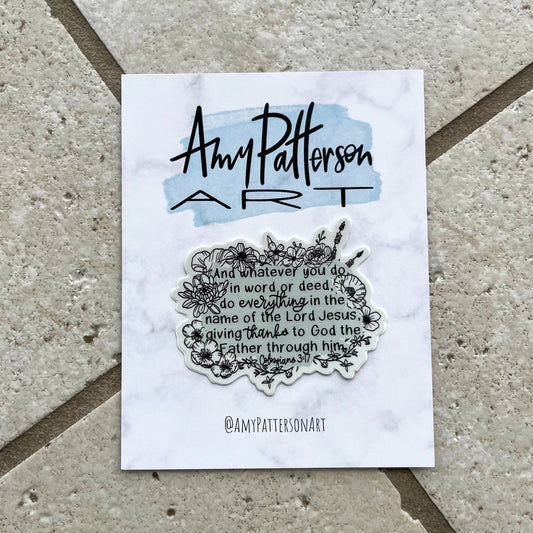 Amy Patterson
ART
And whatever you do,
in word or deed,
do everything in the
name of the Lord Jesus,
giving thanks to God the
Father through him.
Colossians 3:17
@AmyPattersonArt